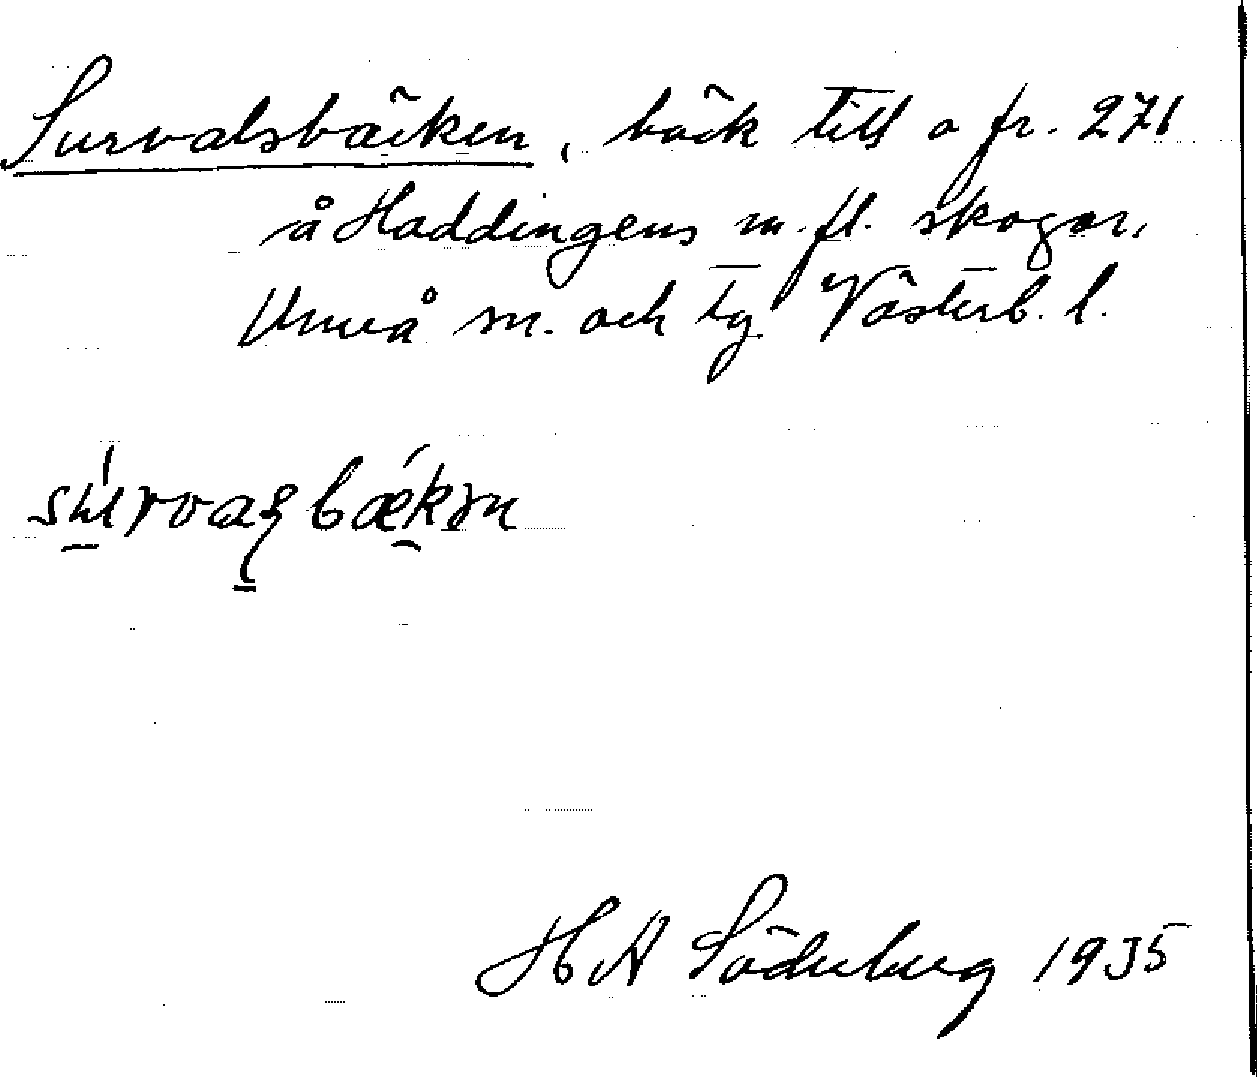 Survalsbäcken, bäck till o fr. 271
å Haddingens m. fl. skogar,
Umeå sn. och tg. Västerb. l.
H A Söderberg 1935